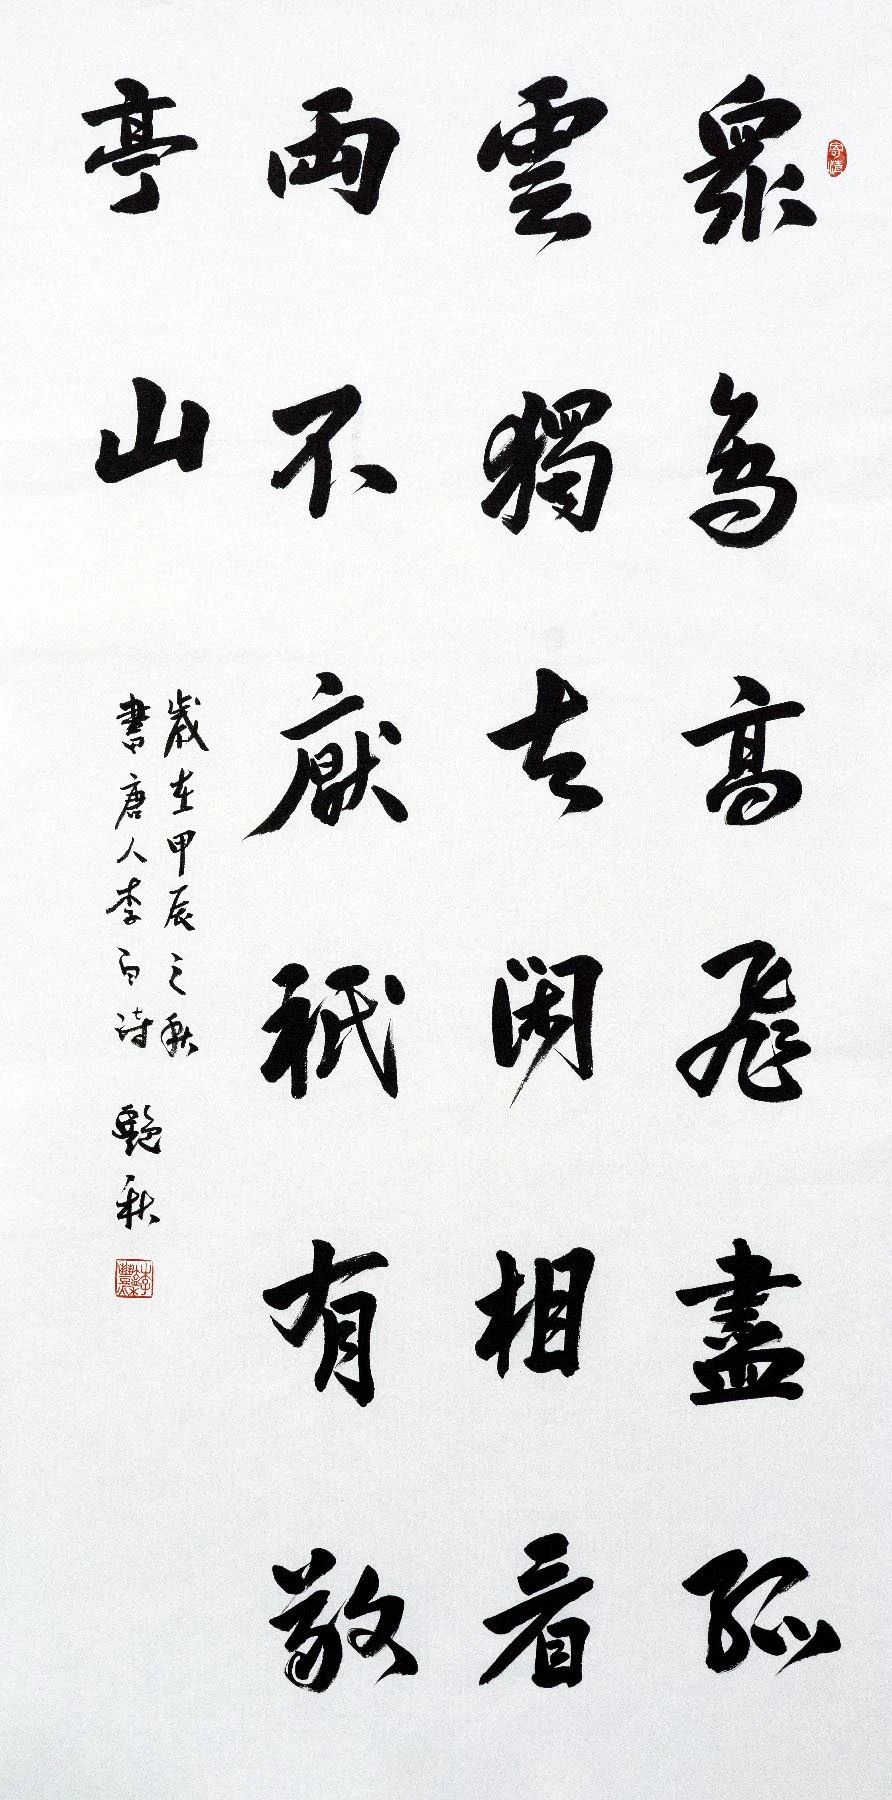 寄情
眾鳥高飛盡孤
雲獨去閑相看
兩不厭祇有敬
亭山
歲在甲辰之秋
書唐人李白詩 艷秋